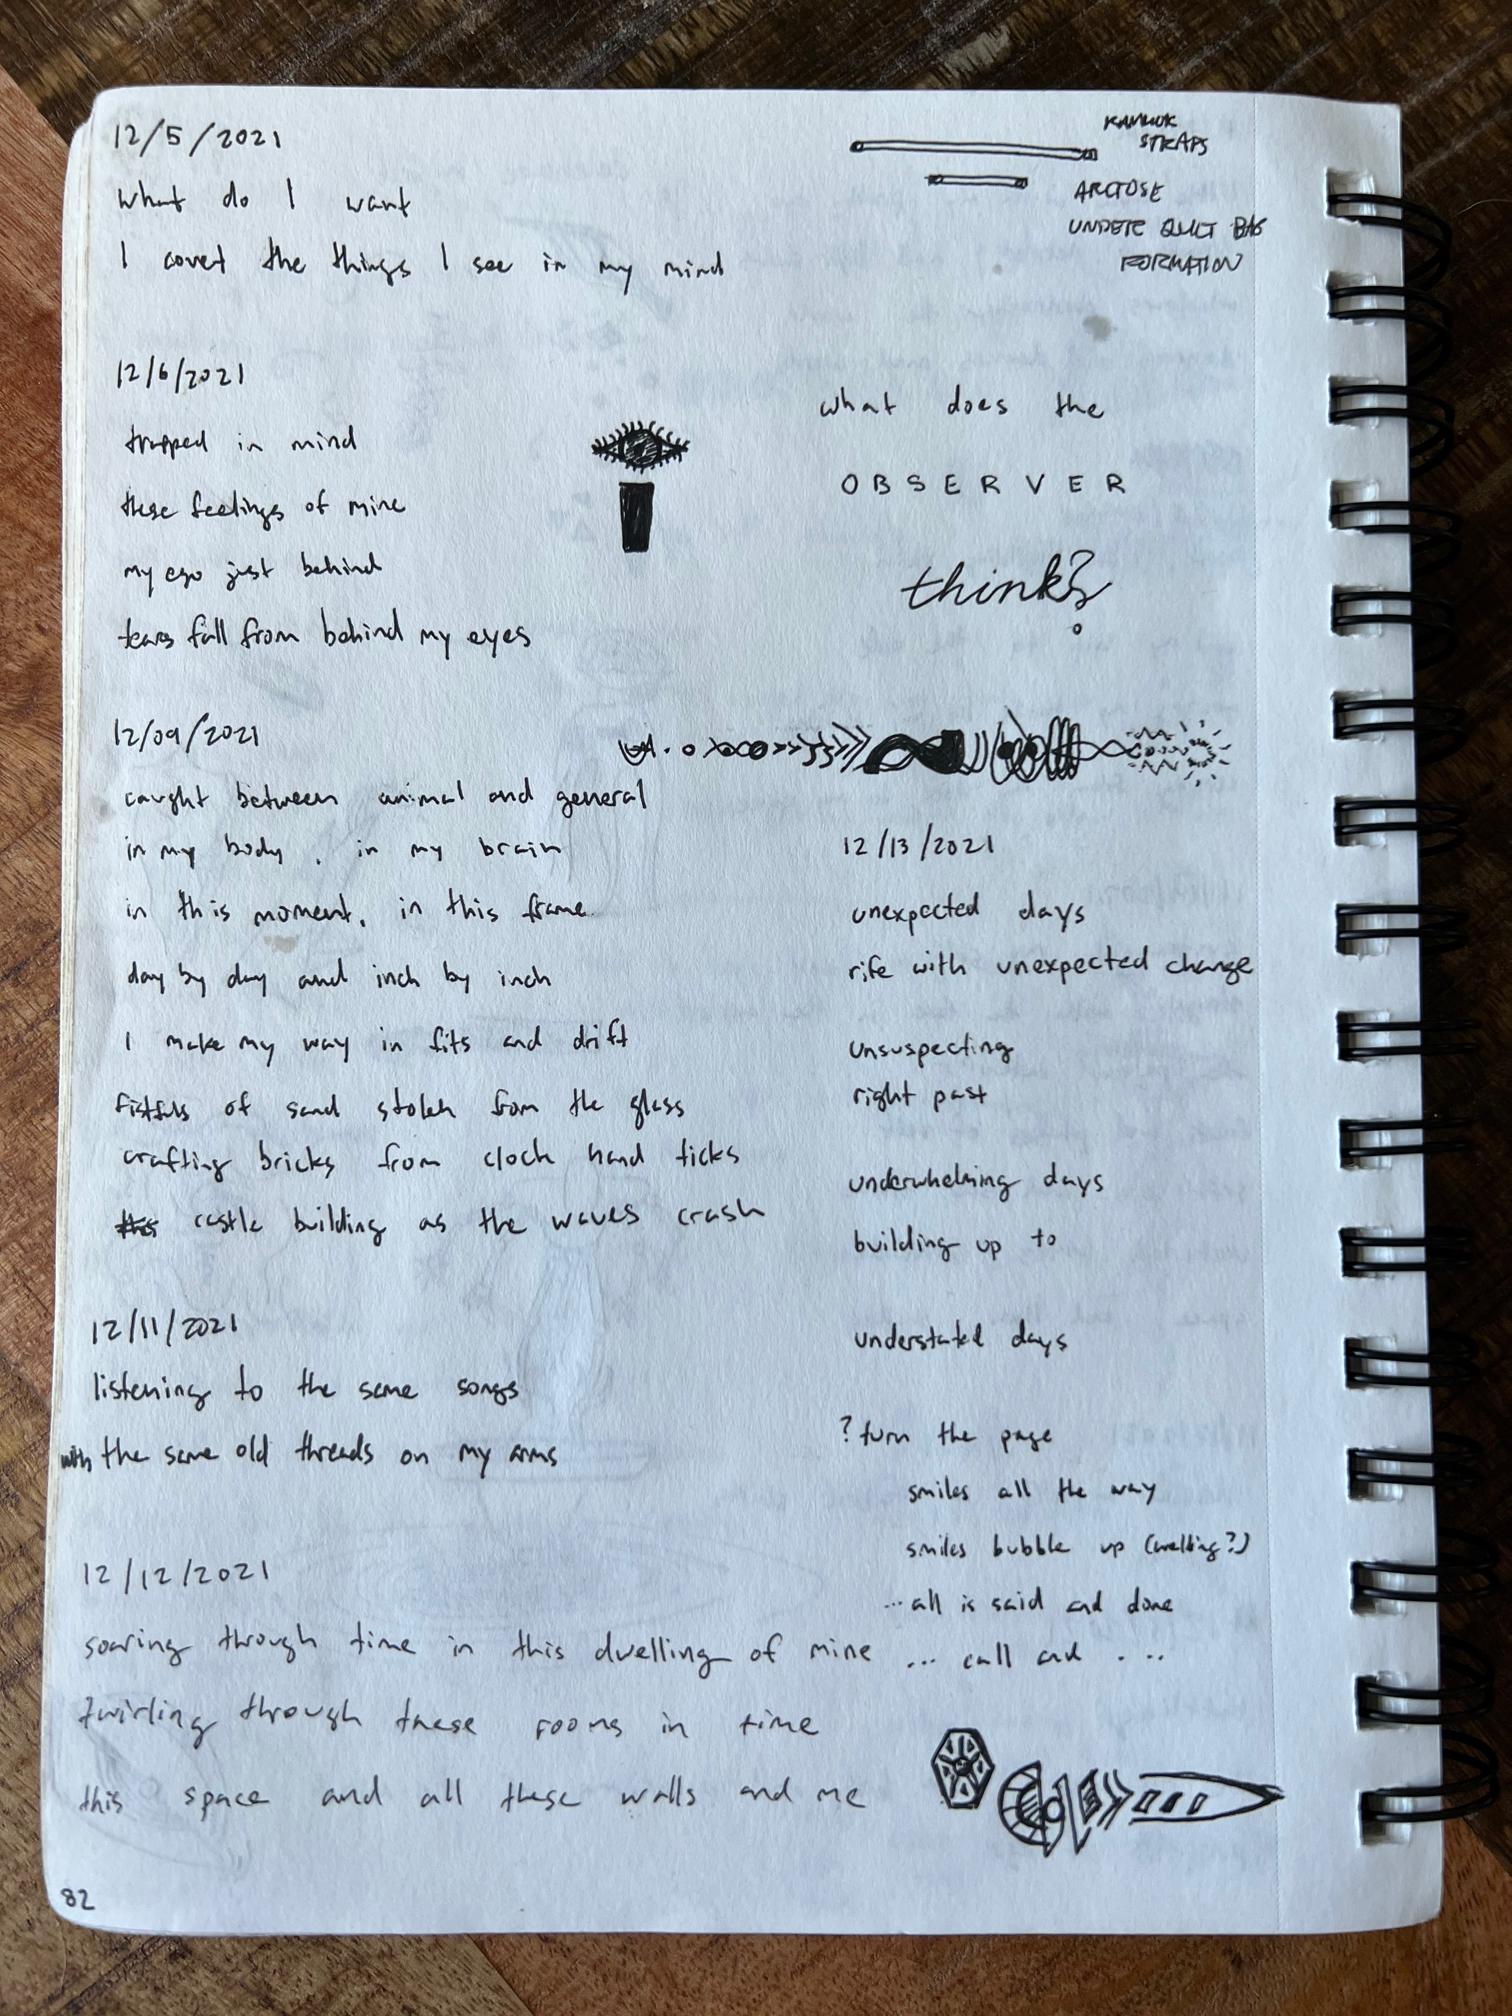 12/5/2021
what do I want
I covet the things I see in my mind
12/6/2021
trapped in mind
these feelings of mine
my ego just behind
tears fall from behind my eyes
12/09/2021
caught between animal and general
in my body, in my brain
in this moment, in this frame
day by day and inch by inch
I make my way in fits and drift
fistfuls of sand stolen from the glass
crafting bricks from clock hand ticks
castle building as the waves crash
12/11/2021
listening to the same songs
with the same old threads on my arms
12/12/2021
soaring through time in this dwelling of mine
twirling through these rooms in time
this space and all these walls and me
82
STRAPS
UNDER QUILT
FORMATION
what does the
OBSERVER
think?
12/13/2021
unexpected days
rife with unexpected change
unsuspecting
right past
underwhelming days
building up to
understated days
? turn the page
smiles all the way
smiles bubble up (welling?)
... all is said and done
... call and ...